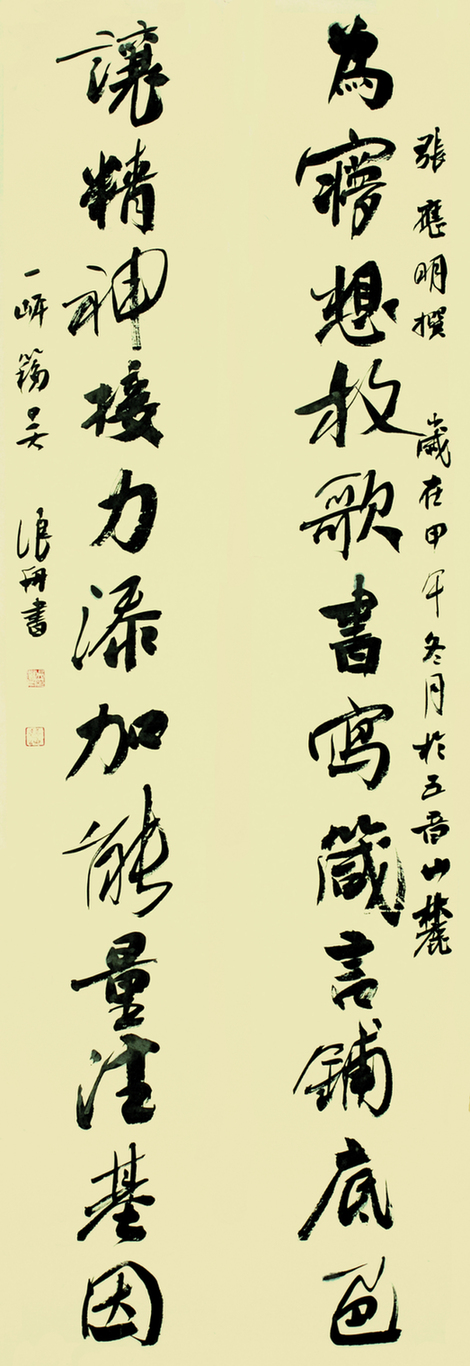 張應明撰 歲在甲午冬月於五音山麓
為夢想放歌書寫箴言鋪底色
讓精神接力添加能量注基因
浪舟書